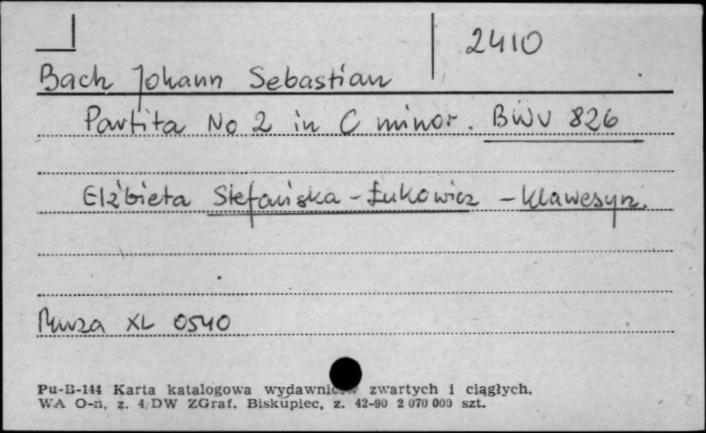 2410
Bach Johann Sebastian
Partita No 2 in C minor. BWV 826
Elżbieta Stefańska-Łukowicz - klawesyn.
Muza XL 0540
Pu-B-144 Karta katalogowa wydawnictw zwartych i ciągłych.
WA O-n, z. 4/DW ZGraf. Biskupiec, z. 42-90 2 070 000 szt.